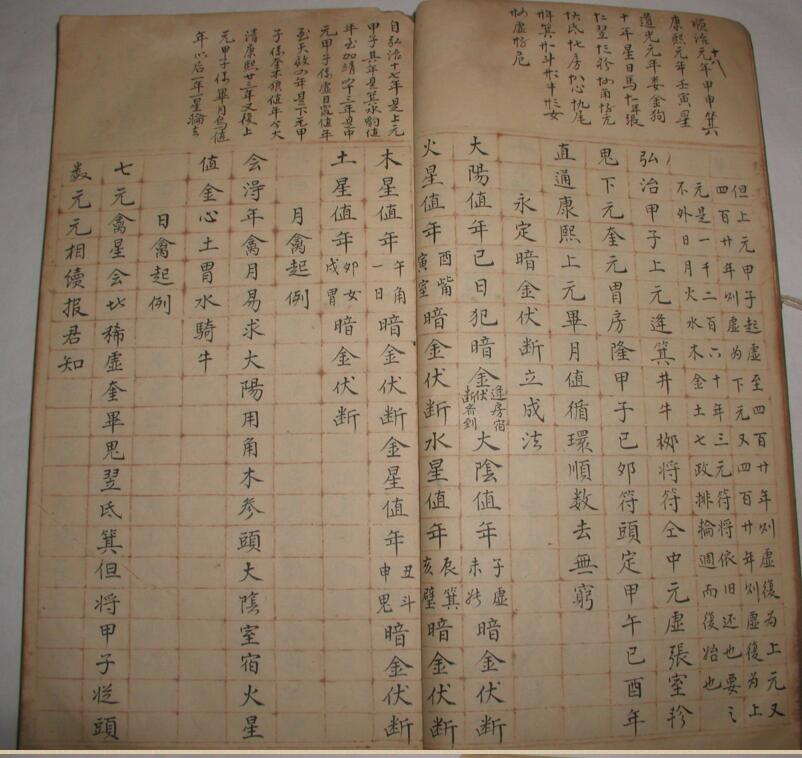 順治十八元年甲申箕
康熙元年壬寅星
道光元年娄金狗
十年星日馬十一年張
仁翌
氐七房
女
虚
但上元甲子起虚至四百廿年则虚復為上元又
四百廿年则虚為下元又四百廿年则虚復為上
元是一千二百六十年三元符将依旧还也要之
不外日月火水木金土七政排輪週而復始也
弘治甲子上元逢箕井牛柳将符仝中元虚張室軫
鬼下元奎元胃房隆甲子已夘符頭定甲午已酉年
直通康熙上元畢月值循環順数去無窮
永定暗金伏断立成法
大陽值年已日犯暗金伏断逢房宿大陰值年子虚未暗金伏断
火星值年酉觜寅室暗金伏断水星值年辰箕亥壁暗金伏断
木星值年午角一日暗金伏断金星值年丑斗申鬼暗金伏断
土星值年夘女戍胃暗金伏断
月禽起例
会淂年禽月易求大陽用角木参頭大陰室宿火星
值金心土胃水騎牛
日禽起例
七元禽星会北稀虚奎畢鬼翌氐箕但将甲子從頭
数元元相續报君知
自弘治十七年是上元
甲子其年是箕水豹值
年至加靖四十三年是中
元甲子係虚日鼠值年
至天啟四年是下元甲
子係奎木狼值年今大
清康熙廿三年又復上
元甲子係畢月烏值
年以后一年一星輪去